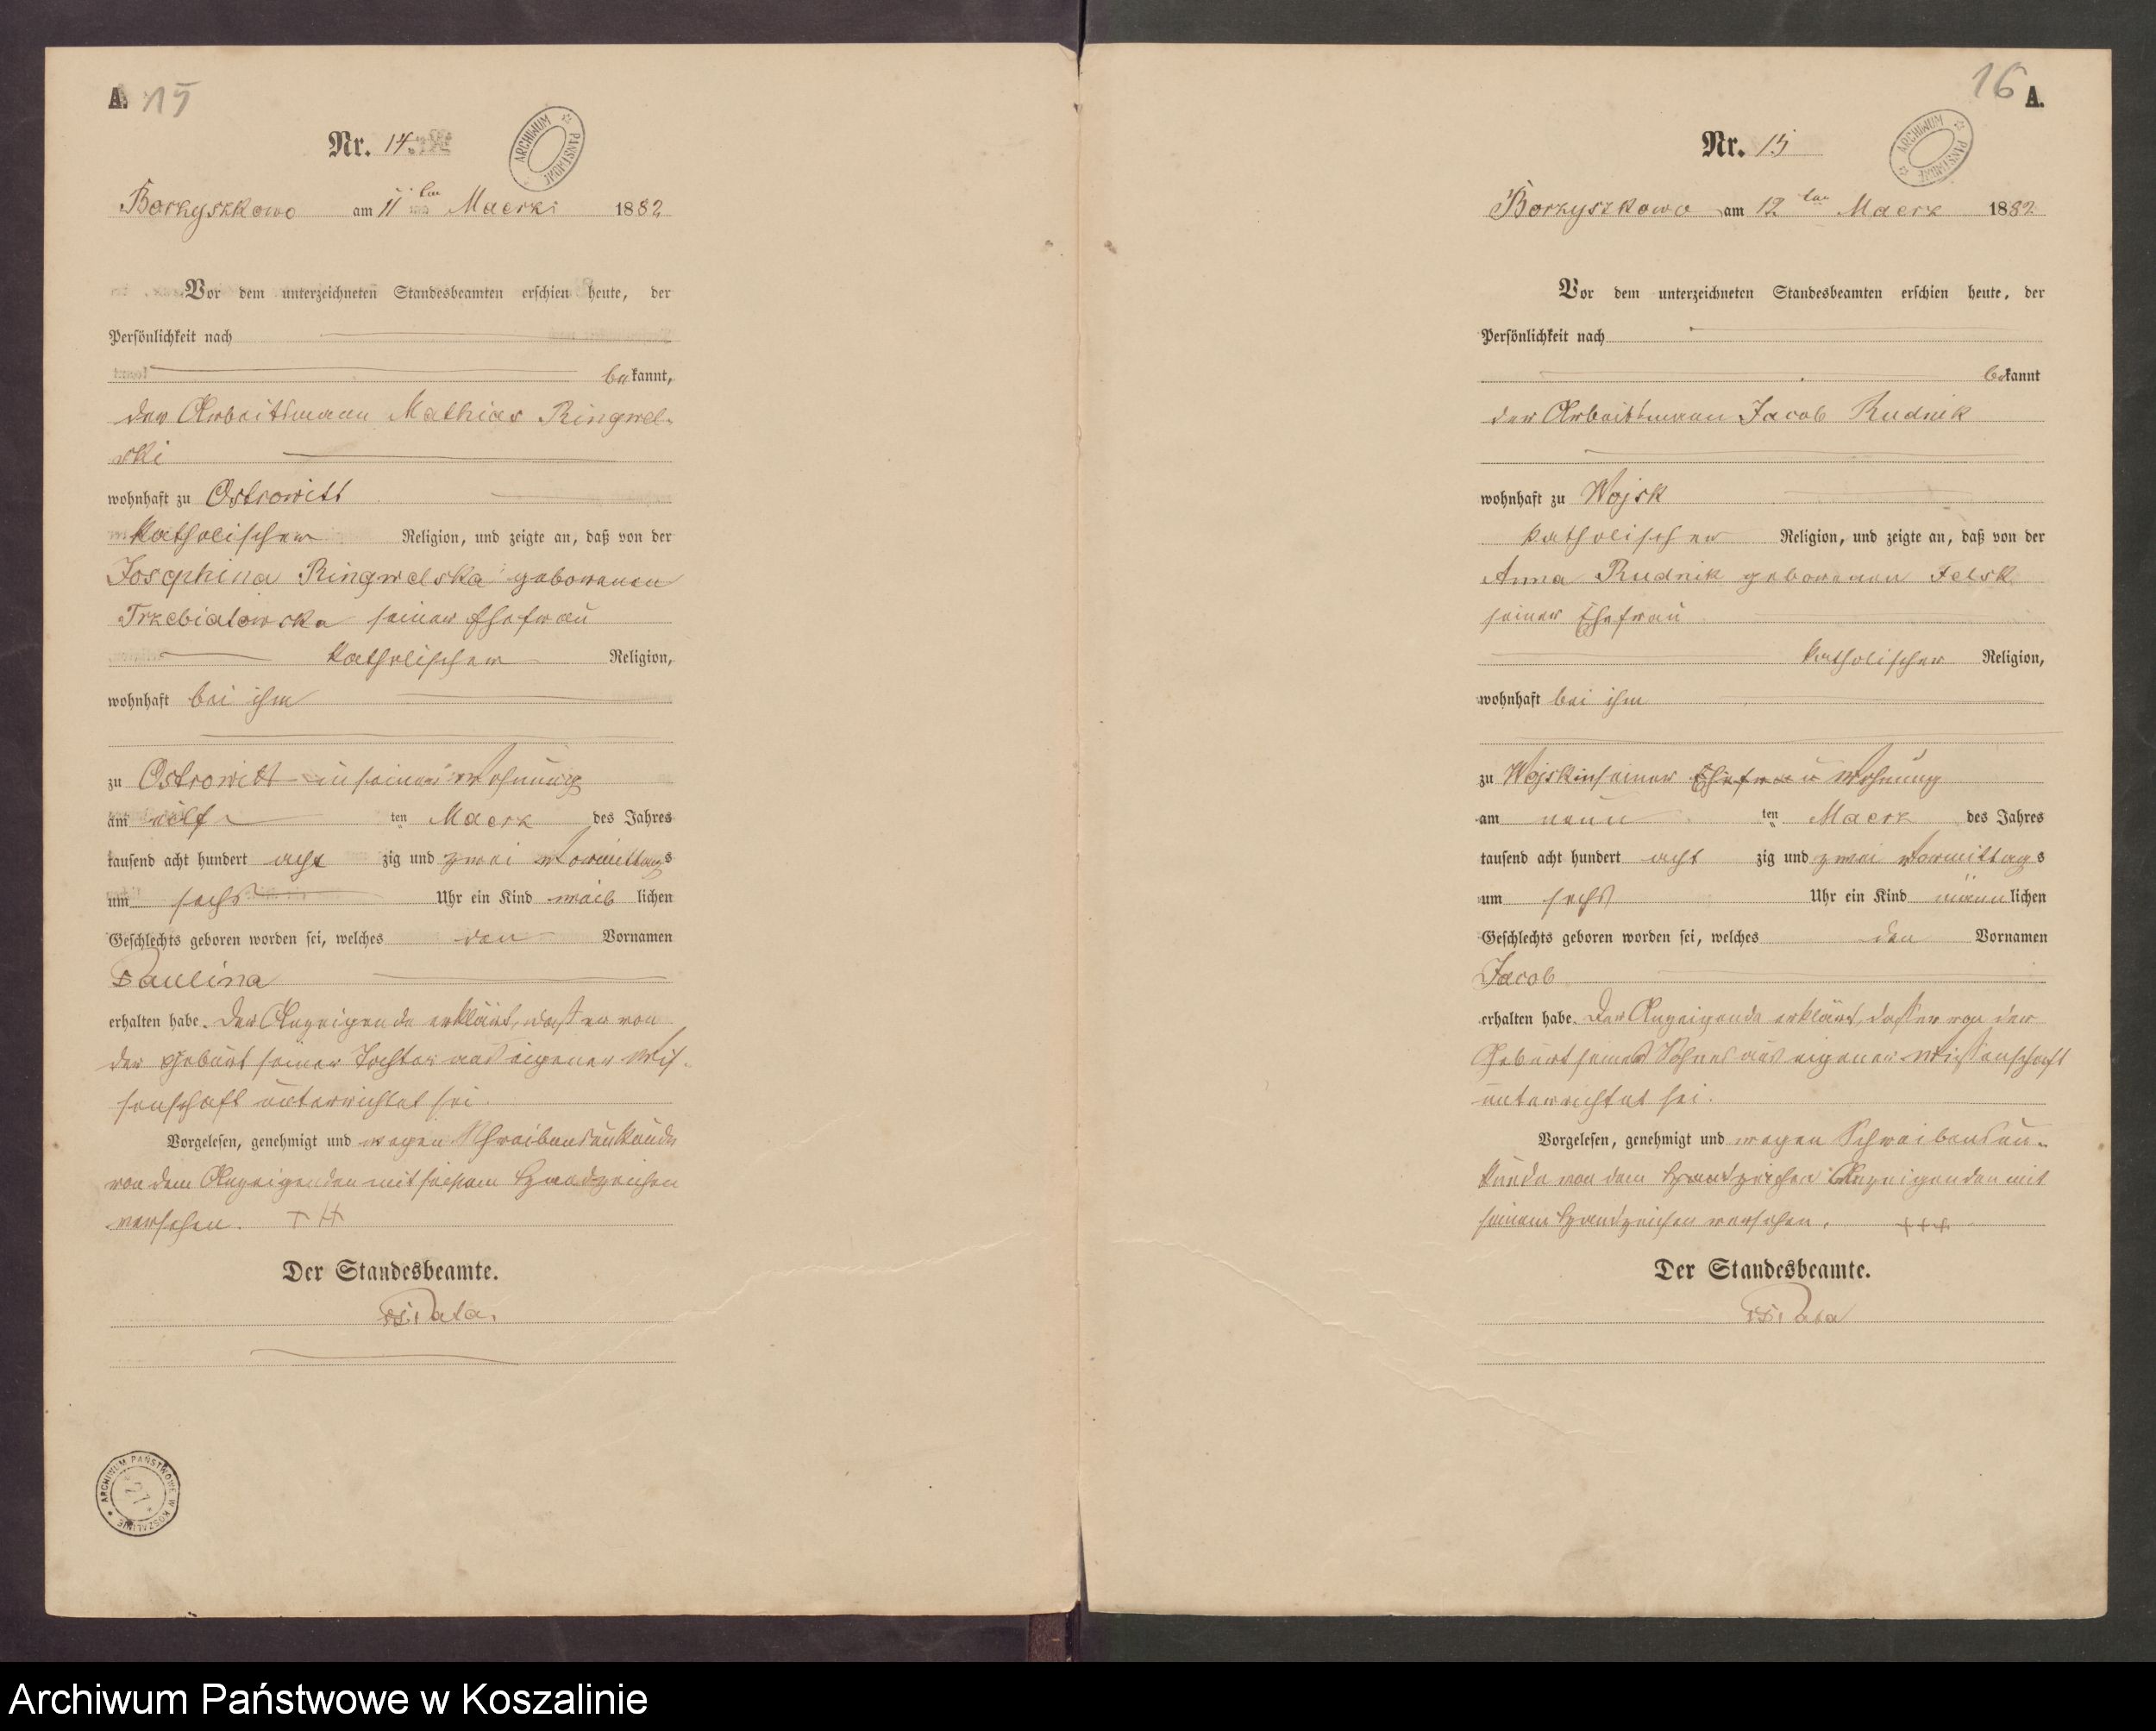 A. 15
Nr. 14.
ARCHIWUM PAŃSTWOWE
Borzyszkowo am 11 ten Maerz 1882
Vor dem unterzeichneten Standesbeamten erschien heute, der
Persönlichkeit nach
bekannt,
der Arbeitsmann Mathias Ringwel-
ski
wohnhaft zu Ostrowitt
katholischer Religion, und zeigte an, daß von der
Josephina Ringwelska geborenen
Trzebiatowska seiner Ehefrau
katholischer Religion,
wohnhaft bei ihm
zu Ostrowitt in seiner Wohnung
am elf ten Maerz des Jahres
tausend acht hundert acht zig und zwei Vormittags
um sechs Uhr ein Kind weib lichen
Geschlechts geboren worden sei, welches den Vornamen
Paulina
erhalten habe. Der Anzeigende erklärt, daß er von
der Geburt seiner Tochter aus eigener Wis-
senschaft unterrichtet sei.
Vorgelesen, genehmigt und wegen Schreibensunkunde
von dem Anzeigenden mit seinem Handzeichen
versehen. +++
Der Standesbeamte.
Pata.
ARCHIWUM PAŃSTWOWE W KOSZALINIE
27
16 A.
Nr. 15
ARCHIWUM PAŃSTWOWE
Borzyszkowo am 12 ten Maerz 1882
Vor dem unterzeichneten Standesbeamten erschien heute, der
Persönlichkeit nach
bekannt
der Arbeitsmann Jacob Rudnik
wohnhaft zu Wojsk
katholischer Religion, und zeigte an, daß von der
Anna Rudnik geborenen Felsk
seiner Ehefrau
katholischer Religion,
wohnhaft bei ihm
zu Wojsk in seiner Ehefrau Wohnung
am neun ten Maerz des Jahres
tausend acht hundert acht zig und zwei Vormittags
um sechs Uhr ein Kind männlichen
Geschlechts geboren worden sei, welches den Vornamen
Jacob
erhalten habe. Der Anzeigende erklärt, daß er von der
Geburt seines Sohnes aus eigener Wissenschaft
unterrichtet sei.
Vorgelesen, genehmigt und wegen Schreibensun-
kunde von dem Handzeichen Anzeigenden mit
seinem Handzeichen versehen. +++
Der Standesbeamte.
Pata
Archiwum Państwowe w Koszalinie